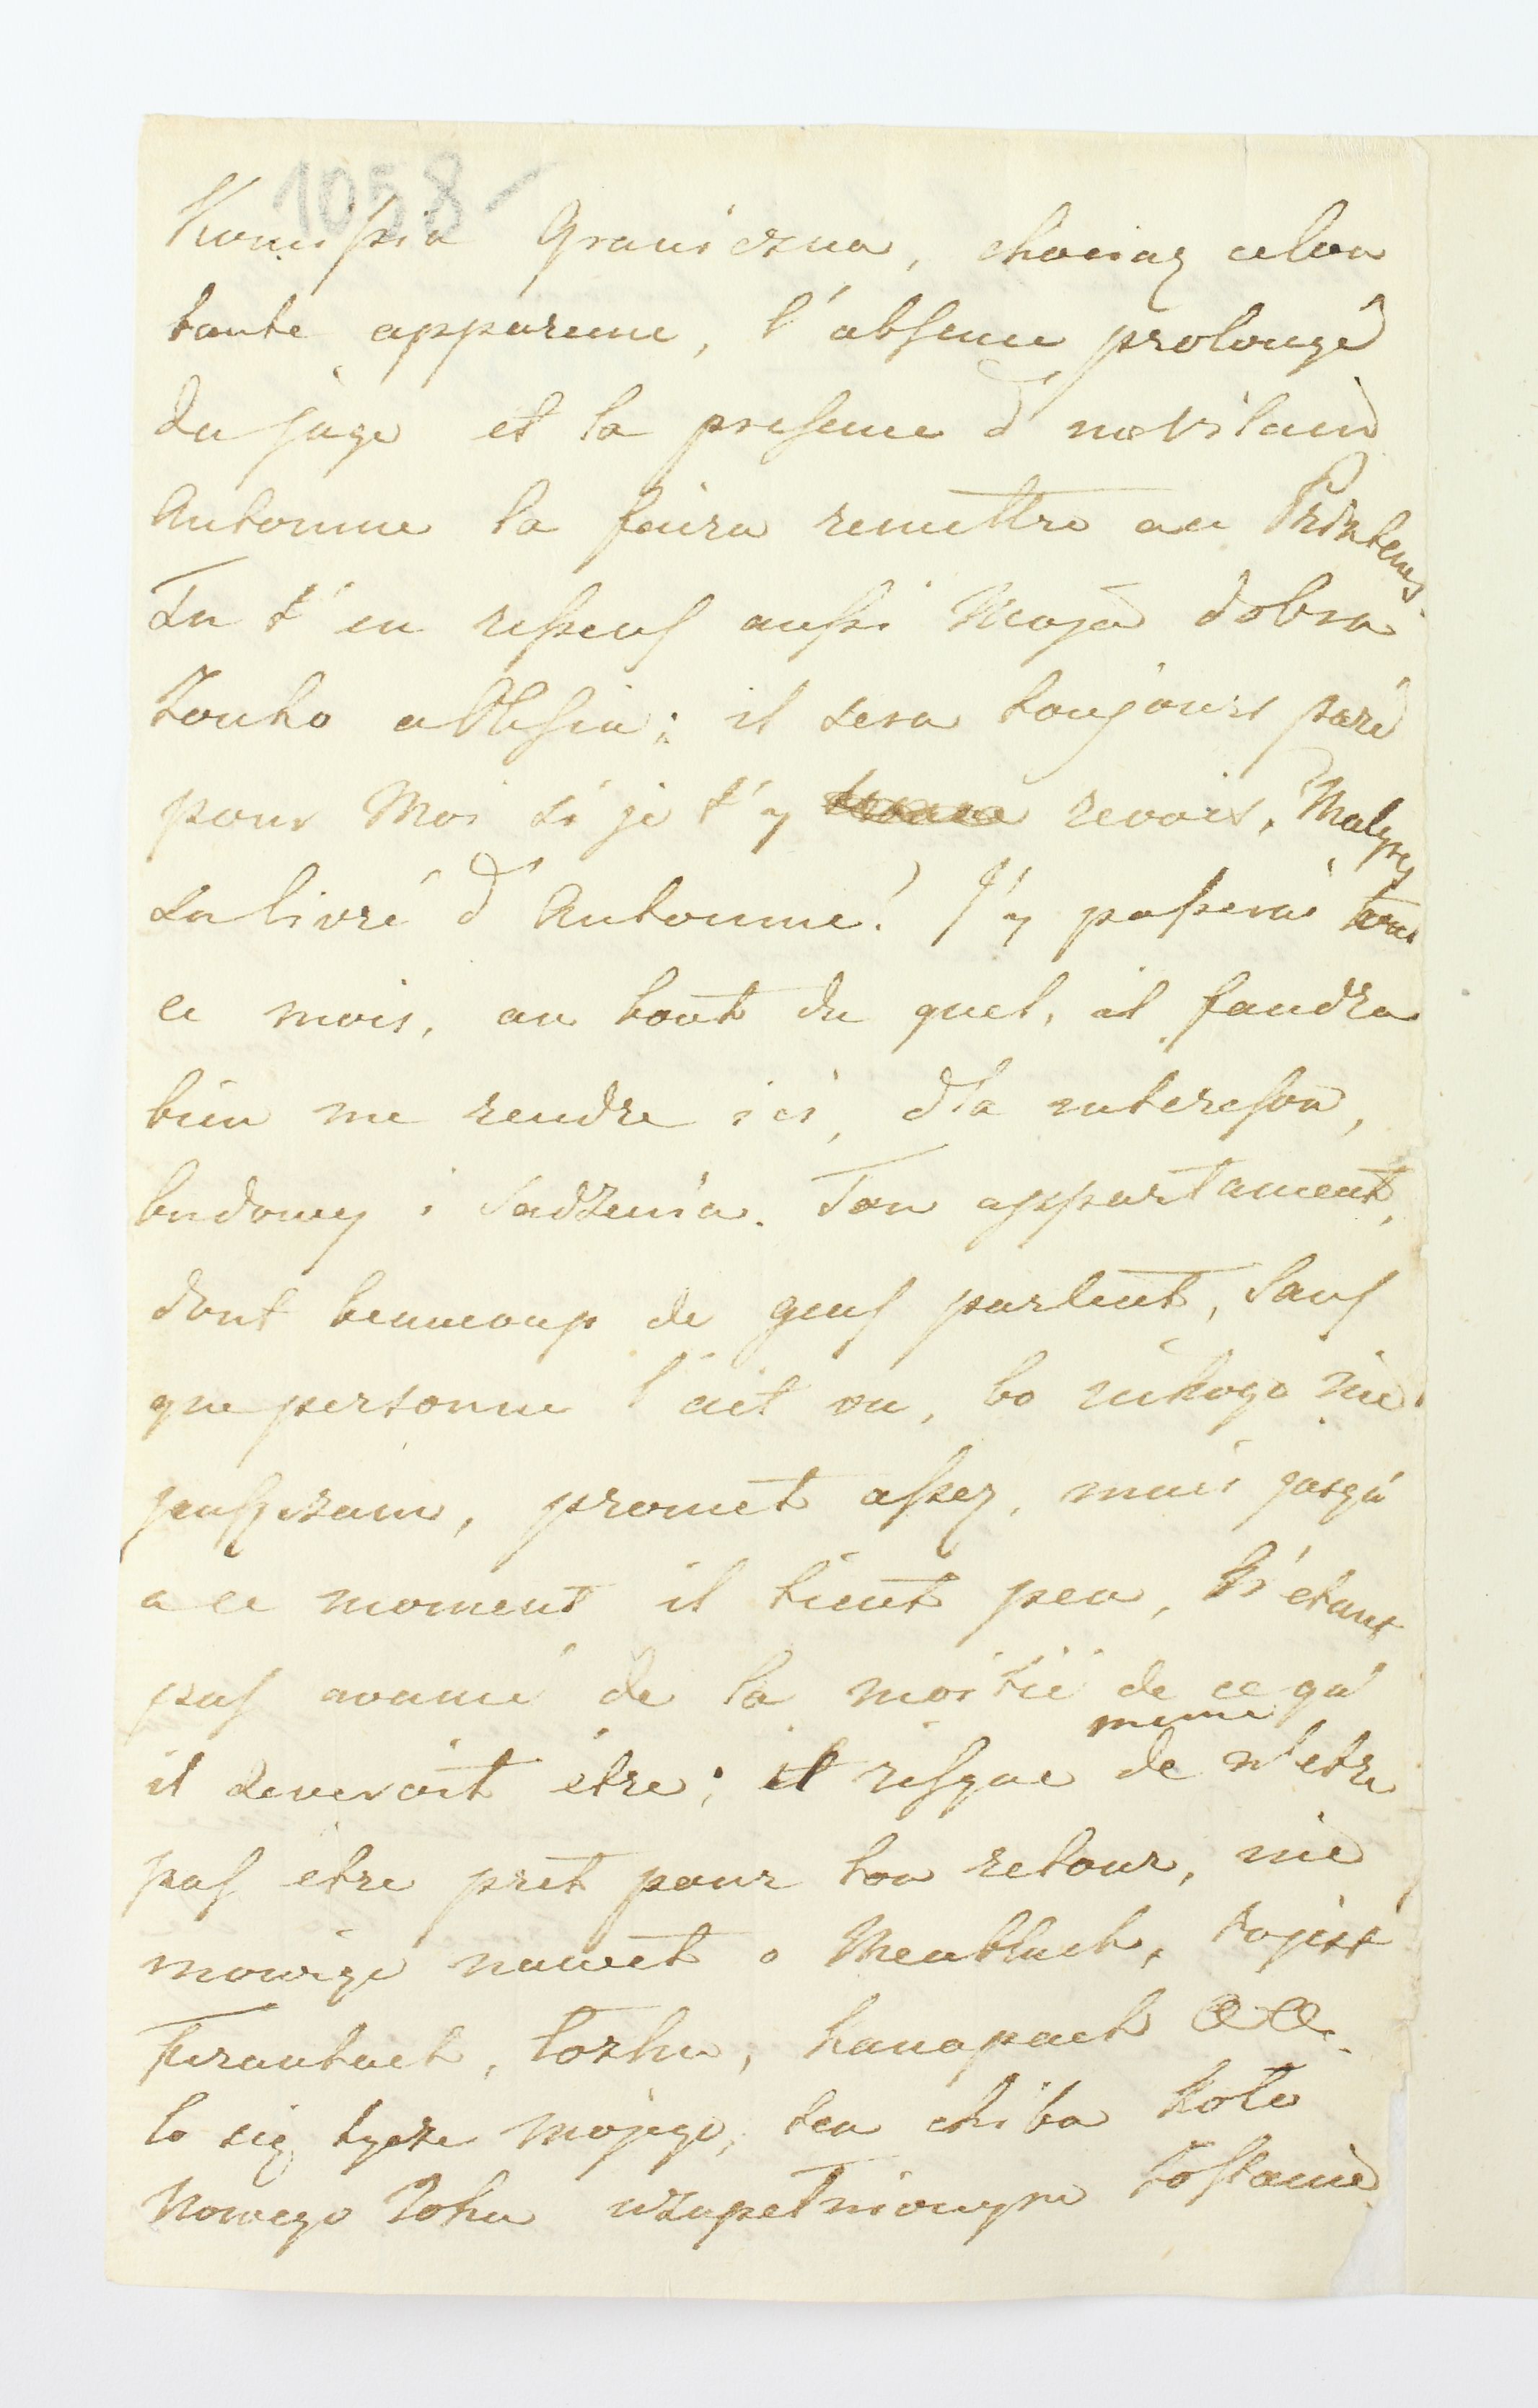 1058-
Komissia Graniczna, chociaz selon
toute apparence, l'absence prolongé
du juge et la presence d'
Automne la faira remettre au Printems
Tu t'en ressens aussi Moja dobra
Zonko ; il sera toujours paré
pour Moi si je t'y revois, Malgré
sa livré d'Automne! J'y passerai tout
ce mois, au bout du quel, il faudra
bien me rendre ici, dla interessow,
budowy i sadzenia. Ton appartament,
dont beaucoup de gens parlent, sans
que personne l'ait vu, bo nikogo nie
puszczam, promet assez, mais jusqu'
a ce moment il tient peu, N'etant
pas avancé de la moitié de ce qu'
il deveroit étre; il risque meme de n'etre
pas étre prêt pour ton retour, nie
mowięc nawet o Meublach, to jest
Firankach, Lozku, kanapach &&.
Co się tycze Mojego, ten chiba koło
Nowego Roku uzupełnionym Zostanie